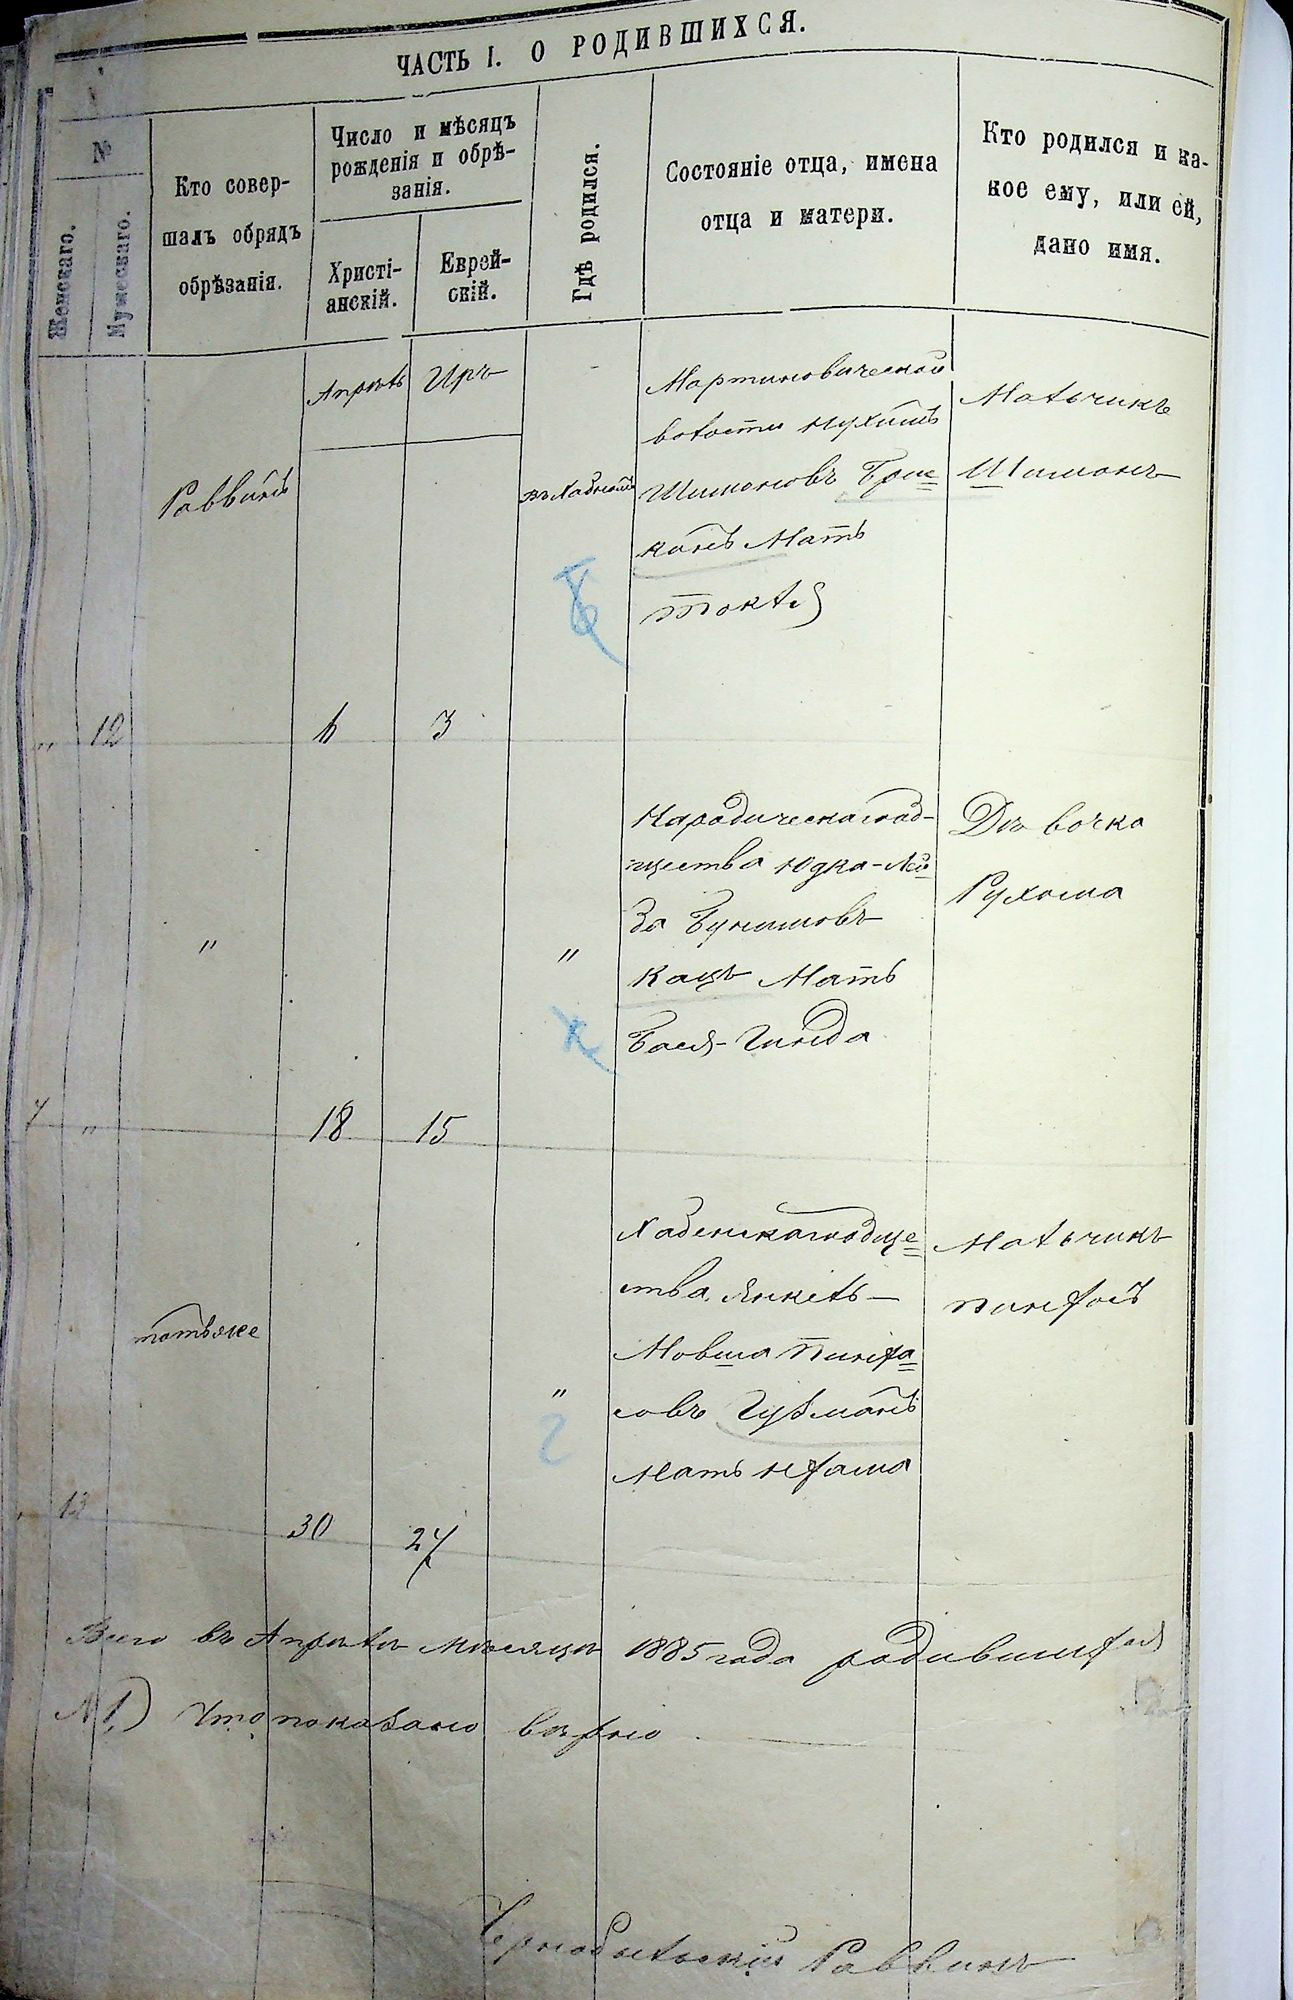 ЧАСТЬ I. О РОДИВШИХСЯ.
№
Женскаго.
Мужескаго.
Кто совер-
шалъ обрядъ
обрѣзанія.
Число и мѣсяцъ
рожденія и обрѣ-
занія.
Христі-
анскій.
Еврей-
скій.
Гдѣ родился.
Состояніе отца, имена
отца и матери.
Кто родился и ка-
кое ему, или ей,
дано имя.
Апрѣль
Иръ
Раввинъ
Мартиновической
волости Нухимъ
Шимоновъ Бри
канъ Мать
Токля
Мальчикъ
Шимонъ
" 12
3
Народическаго об-
щества Юдка-Лей
за Бунимовъ
Кацъ Мать
Бася-Гинда
Дѣвочка
Рухома
"
"
7 "
18
15
Хабенскаго обще
ства Янкель-
Мовша Пинха
совъ Гузманъ
Мать Нехама
Мальчикъ
Пинхосъ
тотъже
"
13
30
27
Всего въ Апрѣлѣ мѣсяцѣ 1885 года родившихся
Что показано вѣрно
Чернобыльскій Раввинъ